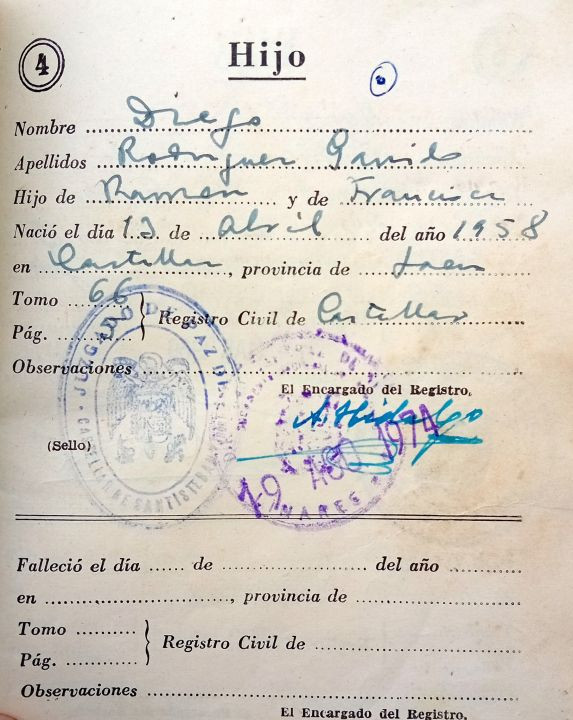 4
Hijo
Nombre Diego
Apellidos Rodriguez Garrido
Hijo de Ramón y de Francisca
Nació el día 12 de abril del año 1958
en Castellar, provincia de Jaen
Tomo 66
Pág. Registro Civil de Castellar
Observaciones
El Encargado del Registro,
A. Hidalgo
(Sello)
JUZGADO DE PAZ DE
CASTELLAR DE SANTISTEBAN
AGO 1974
LINARES
Falleció el día de del año
en , provincia de
Tomo
Pág. Registro Civil de
Observaciones
El Encargado del Registro,